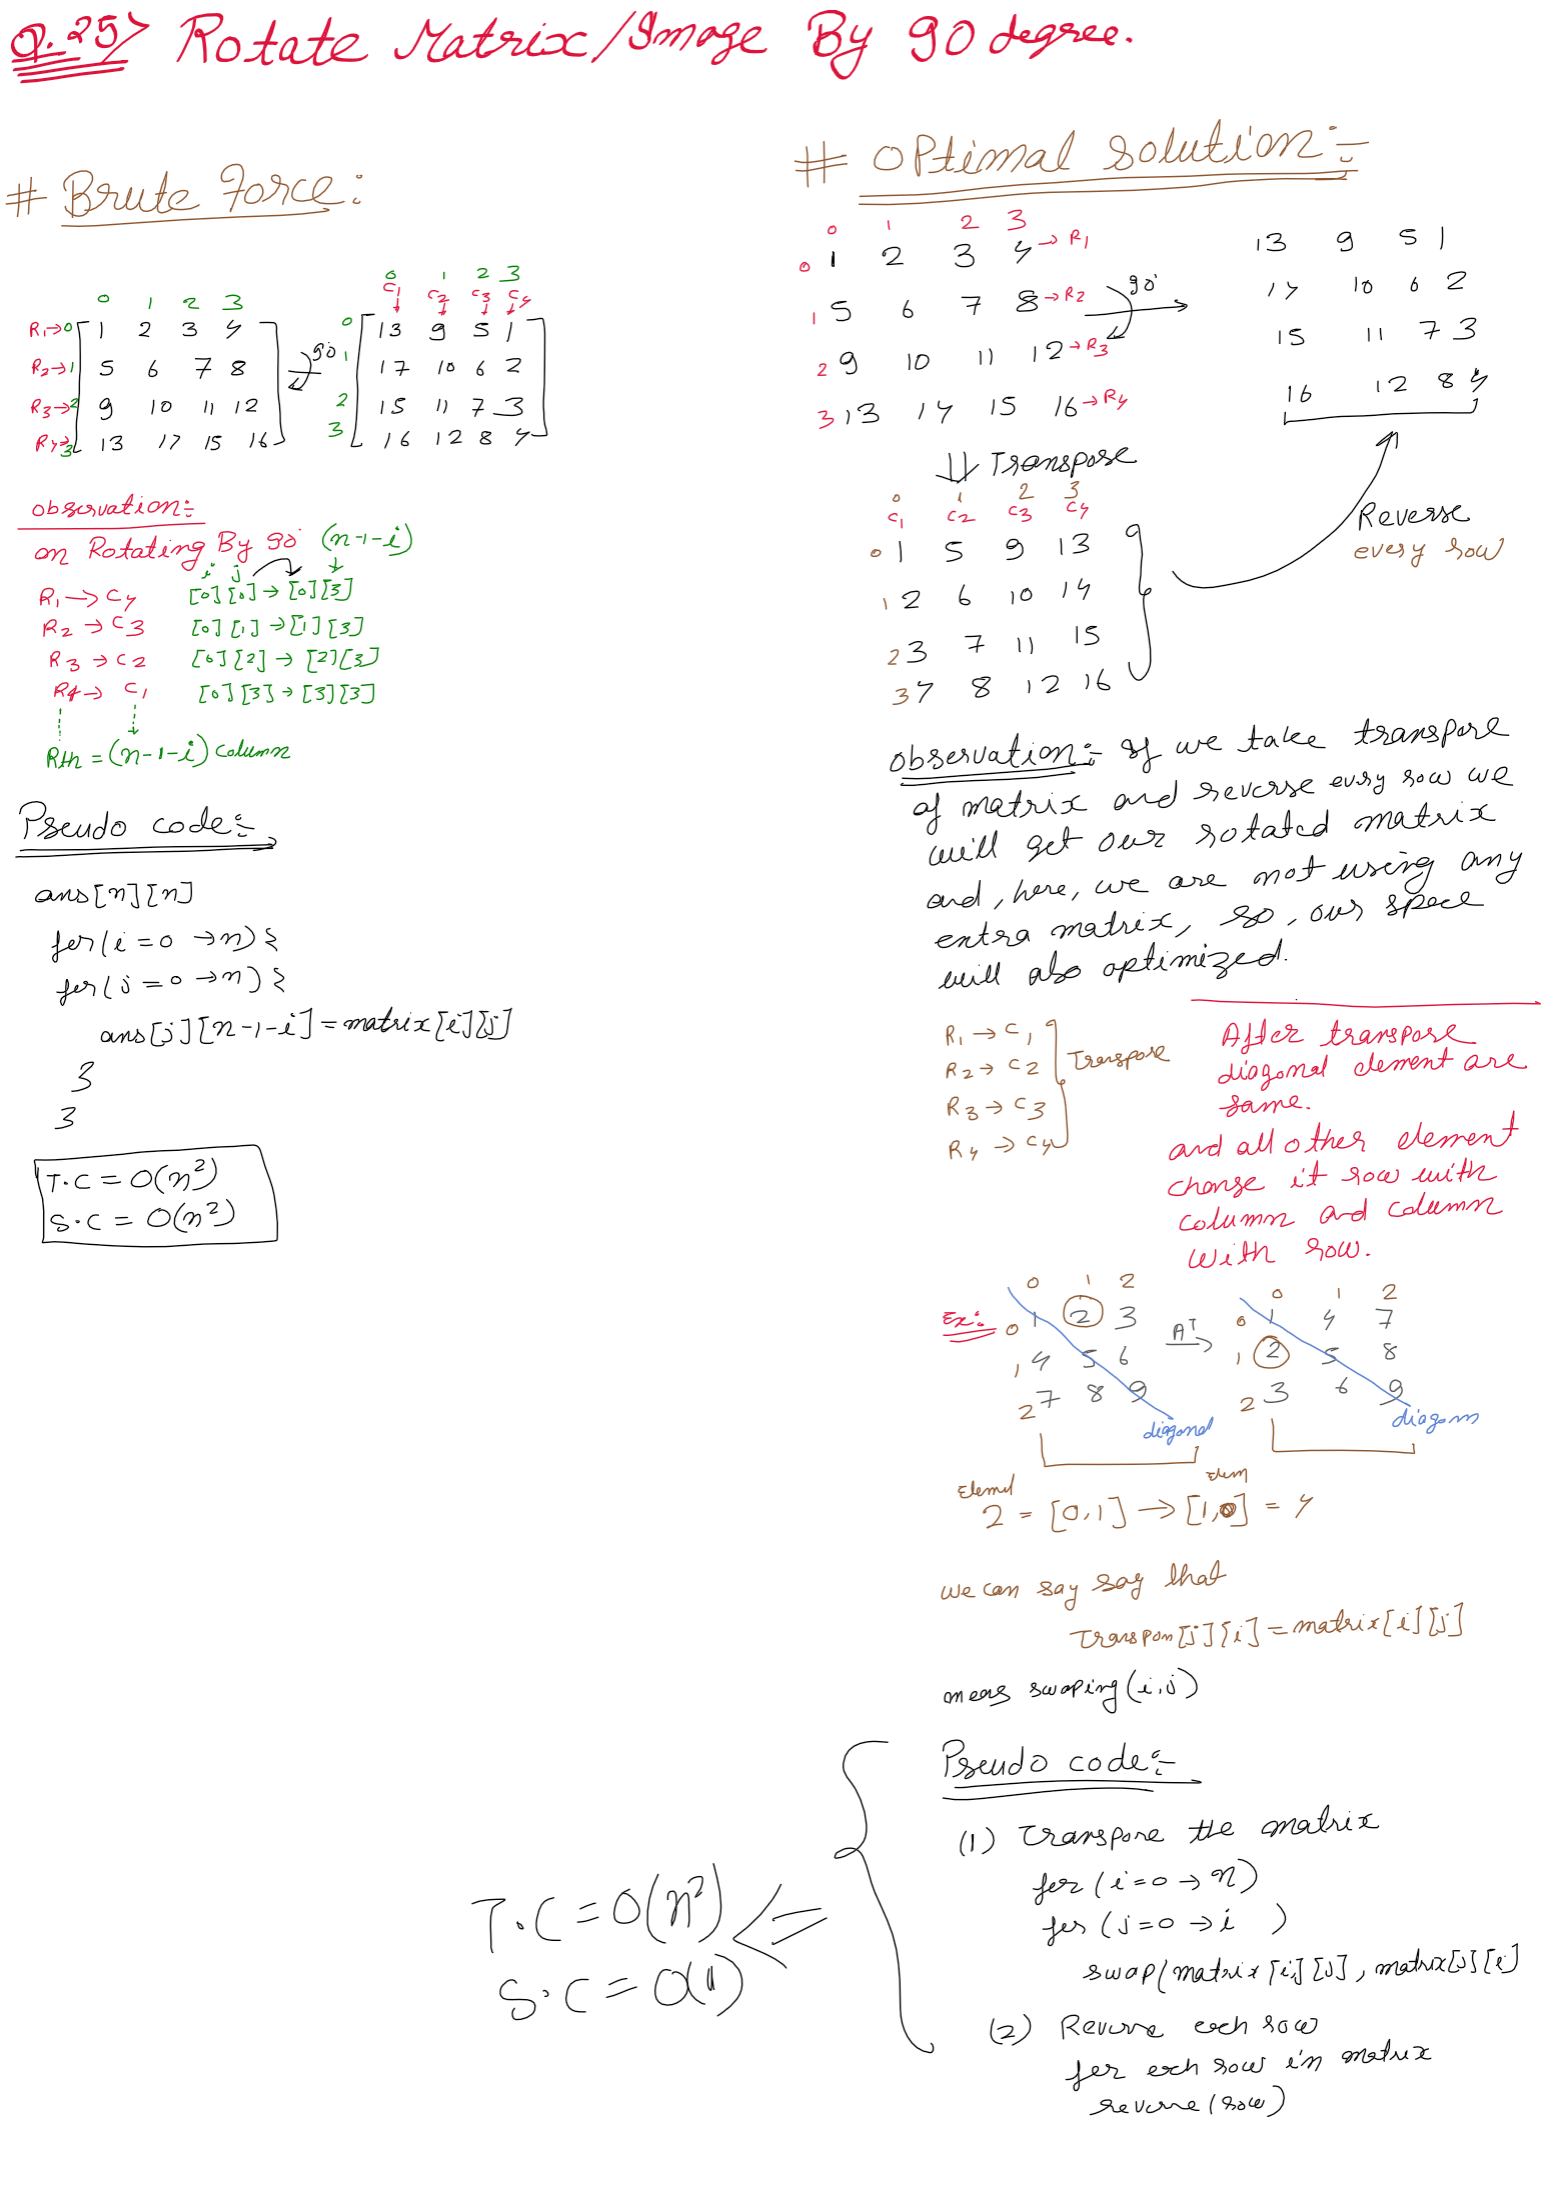 Q.25> Rotate Matrix/Image By 90 degree.
# Brute Force:
0 1 2 3
R1→0 1 2 3 4
R2→1 5 6 7 8
R3→2 9 10 11 12
R4→3 13 14 15 16
90°
0 1 2 3
C1 C2 C3 C4
0 13 9 5 1
1 14 10 6 2
2 15 11 7 3
3 16 12 8 4
observation:-
on Rotating By 90° (n-1-i)
i j
R1 → C4 [0][0] → [0][3]
R2 → C3 [0][1] → [1][3]
R3 → C2 [0][2] → [2][3]
R4 → C1 [0][3] → [3][3]
Rth = (n-1-i) column
Pseudo code:-
ans[n][n]
for(i=0 → n) {
for(j=0 → n) {
ans[j][n-1-i] = matrix[i][j]
}
}
T.C = O(n²)
S.C = O(n²)
# OPtimal solution:-
0 1 2 3
0 1 2 3 4 → R1
1 5 6 7 8 → R2
2 9 10 11 12 → R3
3 13 14 15 16 → R4
90°
13 9 5 1
14 10 6 2
15 11 7 3
16 12 8 4
⇓ Transpose
0 1 2 3
C1 C2 C3 C4
0 1 5 9 13
1 2 6 10 14
2 3 7 11 15
3 4 8 12 16
Reverse
every row
observation:- If we take transpose
of matrix and reverse every row we
will get our rotated matrix
and, here, we are not using any
extra matrix, so, our space
will also optimized.
R1 → C1
R2 → C2
R3 → C3
R4 → C4
Transpose
After transpose
diagonal element are
same.
and all other element
change it row with
column and column
with row.
Ex:-
0 1 2
0 1 2 3
1 4 5 6
2 7 8 9
diagonal
Aᵀ →
0 1 2
0 1 4 7
1 2 5 8
2 3 6 9
diagonn
Elemel Elem
2 = [0,1] → [1,0] = 4
we can say say that
Transpon[j][i] = matrix[i][j]
meas swaping(i,j)
Pseudo code:-
(1) Transpose the matrix
for (i=0 → n)
for (j=0 → i )
swap(matrix[i][j], matrix[j][i]
(2) Reverse each row
for each row in matrix
reverse(row)
T.C = O(n²) <=
S.C = O(1)